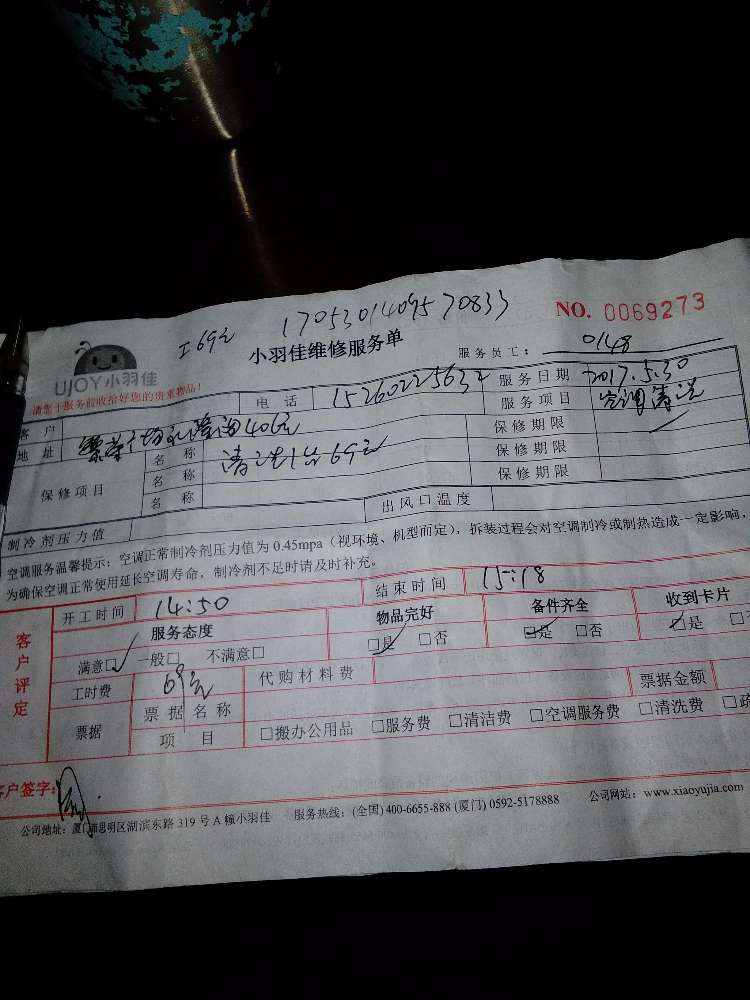 170530140957０833
NO. 0069273
工69元
小羽佳维修服务单
服务员工： 0148
UJOY小羽佳
请您于服务前收拾好您的贵重物品！
电话 15260225632 服务日期 2017.5.30
客户 服务项目 空调清洗
地址 406 保修期限
保修项目 名称 清洗1台69元 保修期限
名称 保修期限
名称
制冷剂压力值 出风口温度
空调服务温馨提示：空调正常制冷剂压力值为 0.45mpa（视环境、机型而定），拆装过程会对空调制冷或制热造成一定影响，
为确保空调正常使用延长空调寿命，制冷剂不足时请及时补充。
客户评定
开工时间 14:50 结束时间 15:18
服务态度 物品完好 备件齐全 收到卡片
满意□ 一般□ 不满意□ □是 □否 □是 □否 □是 □
工时费 69元 代购材料费
票据 票据名称 票据金额
项目 □搬办公用品 □服务费 □清洁费 □空调服务费 □清洗费 □疏
客户签字：
公司地址：厦门市思明区湖滨东路 319 号 A 幢小羽佳 服务热线：(全国) 400-6655-888 (厦门) 0592-5178888 公司网站：www.xiaoyujia.com